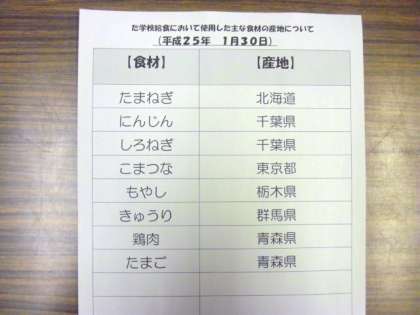 た学校給食において使用した主な食材の産地について
（平成２５年　１月３０日）
【食材】　【産地】
たまねぎ　北海道
にんじん　千葉県
しろねぎ　千葉県
こまつな　東京都
もやし　栃木県
きゅうり　群馬県
鶏肉　青森県
たまご　青森県